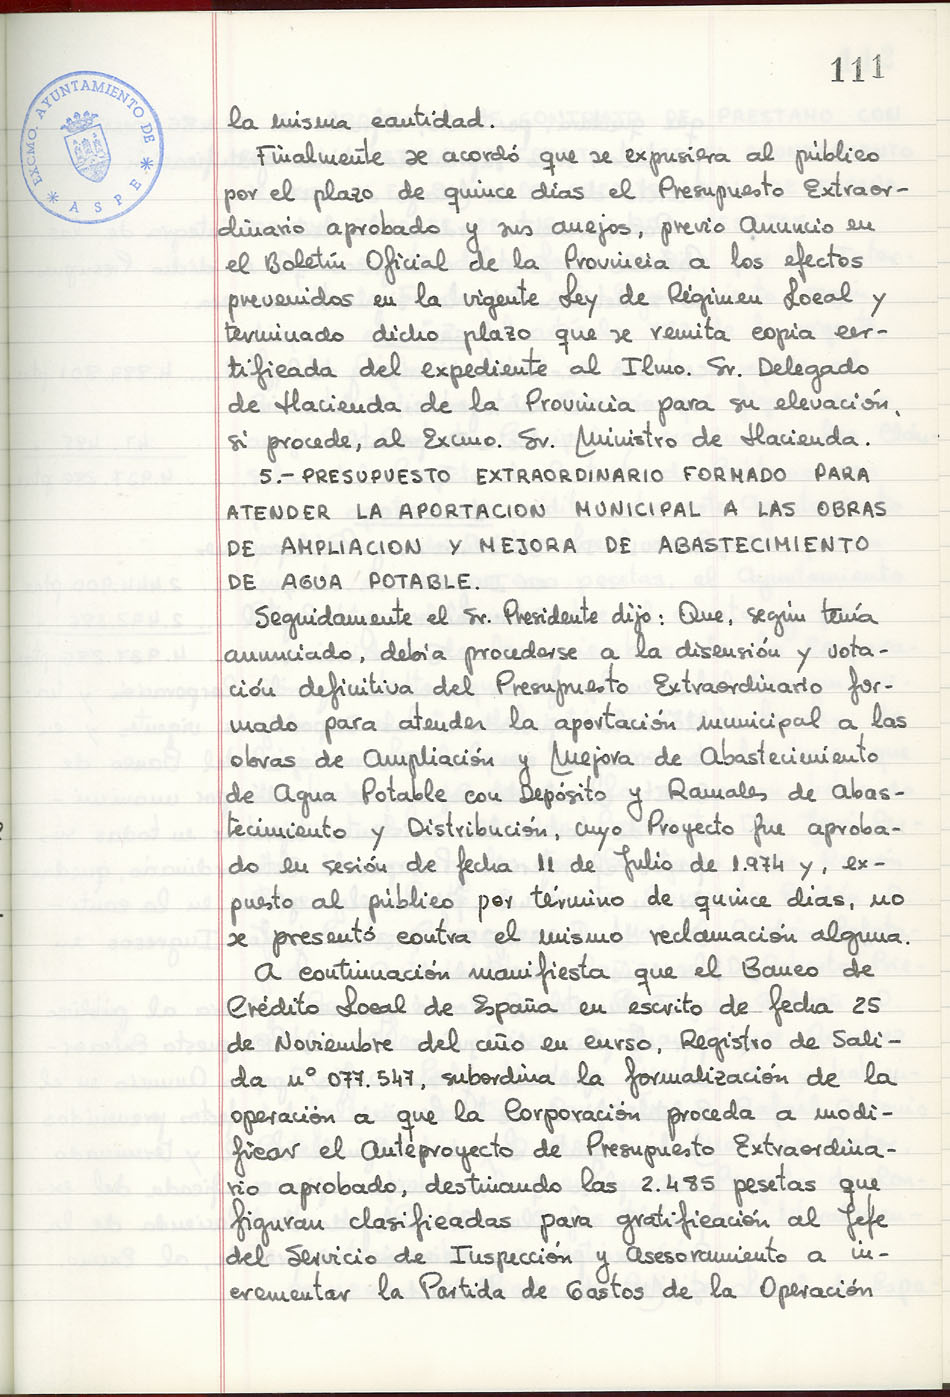 111
EXCMO. AYUNTAMIENTO DE
* ASPE *
la misma cantidad.
Finalmente se acordó que se expusiera al público
por el plazo de quince días el Presupuesto Extraor-
dinario aprobado y sus anejos, previo Anuncio en
el Boletín Oficial de la Provincia a los efectos
prevenidos en la vigente Ley de Régimen Local y
terminado dicho plazo que se remita copia cer-
tificada del expediente al Ilmo. Sr. Delegado
de Hacienda de la Provincia para su elevación,
si procede, al Excmo. Sr. Ministro de Hacienda.
5.- PRESUPUESTO EXTRAORDINARIO FORMADO PARA
ATENDER LA APORTACION MUNICIPAL A LAS OBRAS
DE AMPLIACION Y MEJORA DE ABASTECIMIENTO
DE AGUA POTABLE.
Seguidamente el Sr. Presidente dijo: Que, según tenía
anunciado, debía procederse a la discusión y vota-
ción definitiva del Presupuesto Extraordinario for-
mado para atender la aportación municipal a las
obras de Ampliación y Mejora de Abastecimiento
de Agua Potable con Depósito y Ramales de Abas-
tecimiento y Distribución, cuyo Proyecto fue aproba-
do en sesión de fecha 11 de Julio de 1.974 y, ex-
puesto al público por término de quince días, no
se presentó contra el mismo reclamación alguna.
A continuación manifiesta que el Banco de
Crédito Local de España en escrito de fecha 25
de Noviembre del año en curso, Registro de Sali-
da nº 077.547, subordina la formalización de la
operación a que la Corporación proceda a modi-
ficar el Anteproyecto de Presupuesto Extraordina-
rio aprobado, destinando las 2.485 pesetas que
figuran clasificadas para gratificación al Jefe
del Servicio de Inspección y Asesoramiento a in-
crementar la Partida de Gastos de la Operación